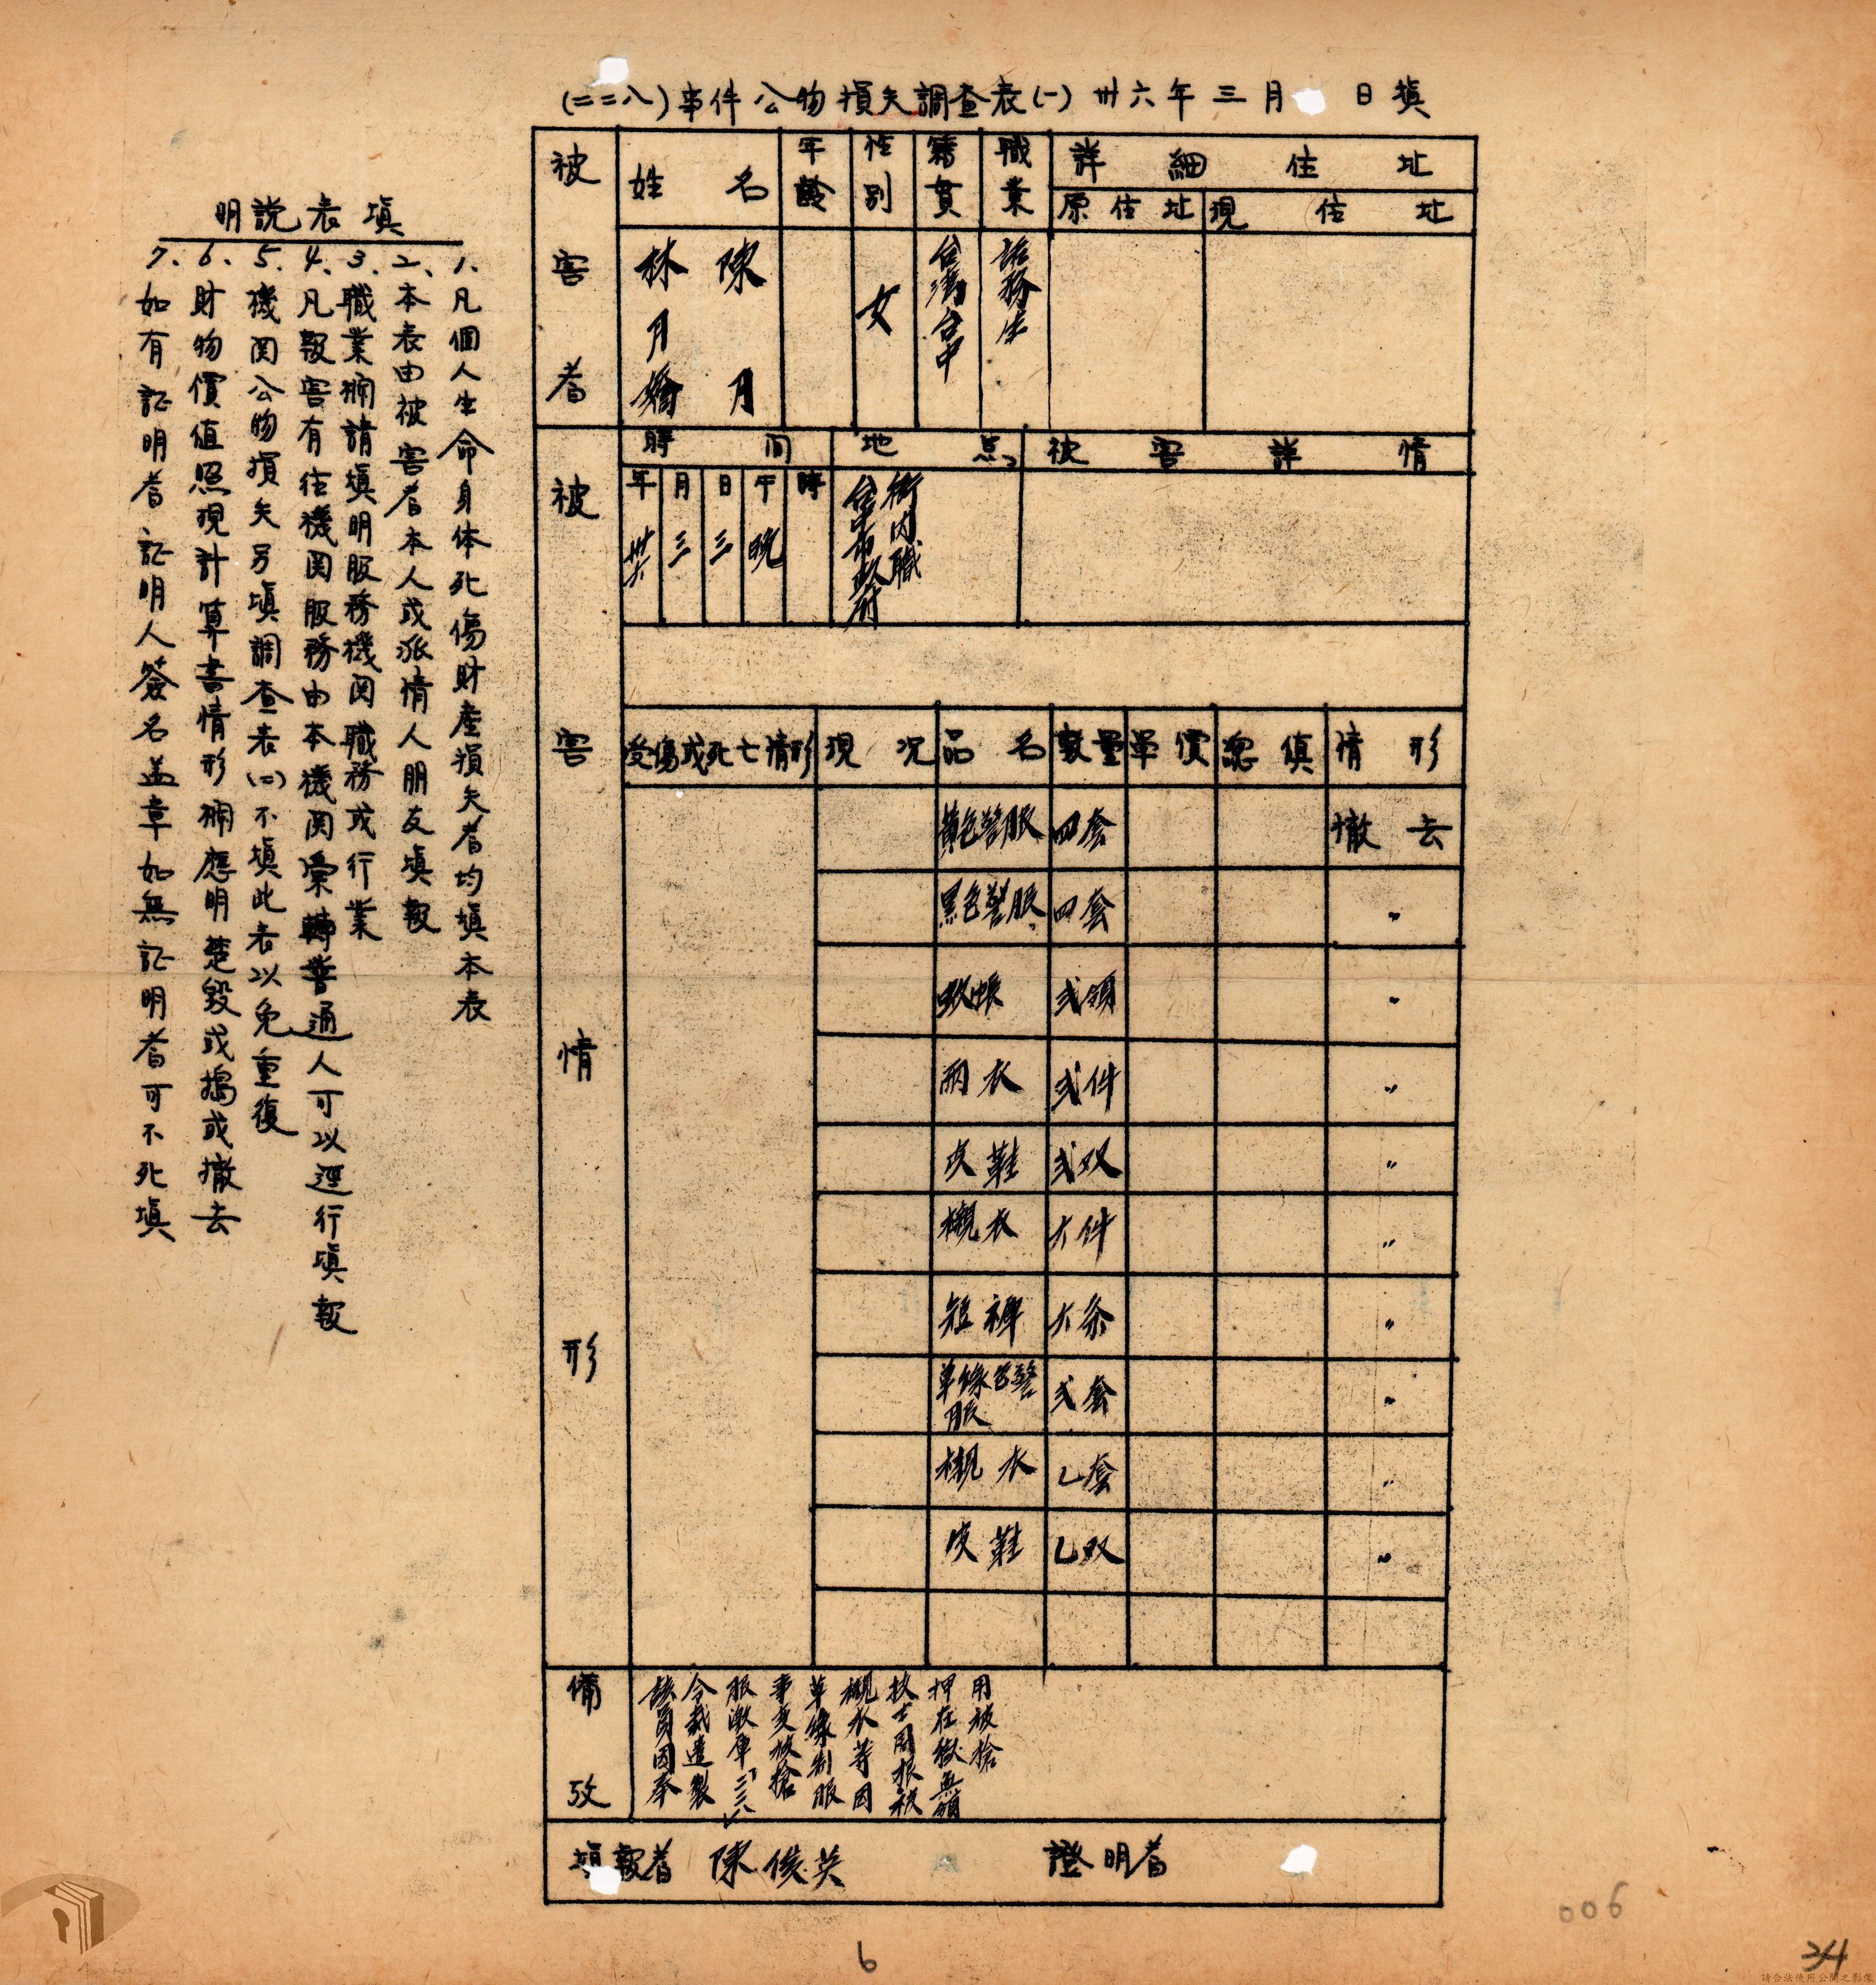 (二二八)事件公物損失調查表(一) 卅六年三月 日填
被害者
姓名
年齡
性別
籍貫
職業
詳細住址
原住址
現住址
陳月
林月嬌
女
台灣台中
話務生
被害情形
時間
地点
被害詳情
年
月
日
午
時
卅六
三
三
晚
台中市政府
衛內職
受傷或死亡情形
現況
品名
數量
單價
總值
情形
黃色警服 四套 撤去
黑色警服 四套 〃
蚊帳 弍領 〃
雨衣 弍件 〃
皮鞋 弍双 〃
襯衣 六件 〃
短褲 六条 〃
草綠色警服 弍套 〃
襯衣 乙套 〃
皮鞋 乙双 〃
備攷
該員因奉
令裁遣製
服繳庫「二二八」
事変被搶
草綠制服
襯衣等因
技士周根被
押在獄無領
用被搶
填報者 陳俊英
證明者
填表說明
1、凡個人生命身体死傷財產損失者均填本表
2、本表由被害者本人或派情人朋友填報
3、職業欄請填明服務機関職務或行業
4、凡報害有住機関服務由本機関彙轉普通人可以逕行填報
5、機関公物損失另填調查表(二)不填此表以免重復
6、財物價值照現計算害情形欄應明楚毀或搗或撤去
7、如有証明者証明人簽名盖章如無証明者可不死填
006
6
34
請合法使用公開之影像